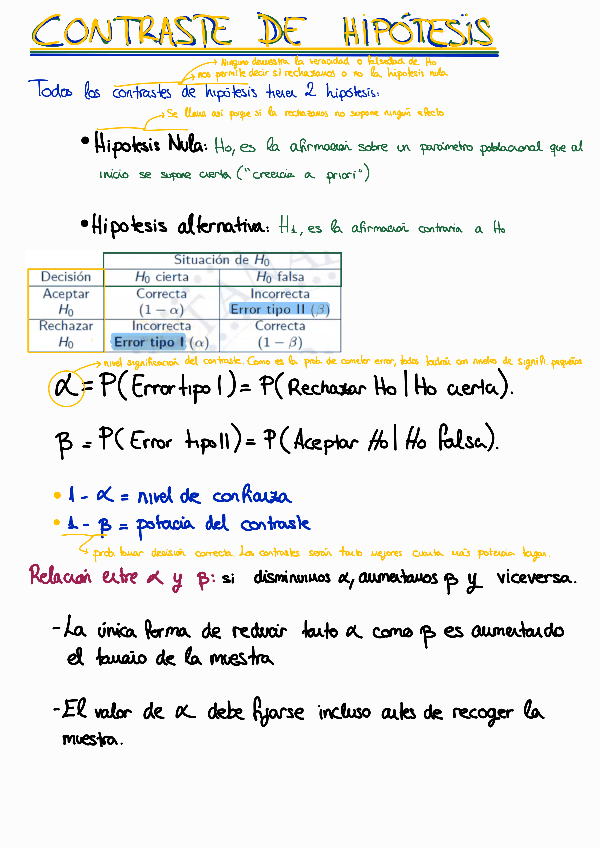 CONTRASTE DE HIPÓTESIS
Ninguno demuestra la veracidad o falsedad de H0
nos permite decir si rechazamos o no la hipotesis nula
Todos los contrastes de hipótesis tienen 2 hipótesis:
Se llama así porque si la rechazamos no supone ningún efecto
• Hipotesis Nula: H0, es la afirmación sobre un parámetro poblacional que al
inicio se supone cierta ("creencia a priori")
• Hipotesis alternativa: H1, es la afirmación contraria a H0
Situación de H0
Decisión H0 cierta H0 falsa
Aceptar Correcta Incorrecta
H0 (1 − α) Error tipo II (β)
Rechazar Incorrecta Correcta
H0 Error tipo I (α) (1 − β)
nivel significación del contraste. Como es la prob. de cometer error, todos tendrán con niveles de signifi. pequeños
α = P(Error tipo I) = P(Rechazar H0 | H0 cierta).
β = P(Error tipo II) = P(Aceptar H0 | H0 falsa).
• 1 - α = nivel de confianza
• 1 - β = potencia del contraste
prob. tomar decisión correcta. Los contrastes serán tanto mejores cuanta más potencia tengan.
Relación entre α y β: si disminuimos α, aumentamos β y viceversa.
- La única forma de reducir tanto α como β es aumentando
el tamaño de la muestra
- El valor de α debe fijarse incluso antes de recoger la
muestra.